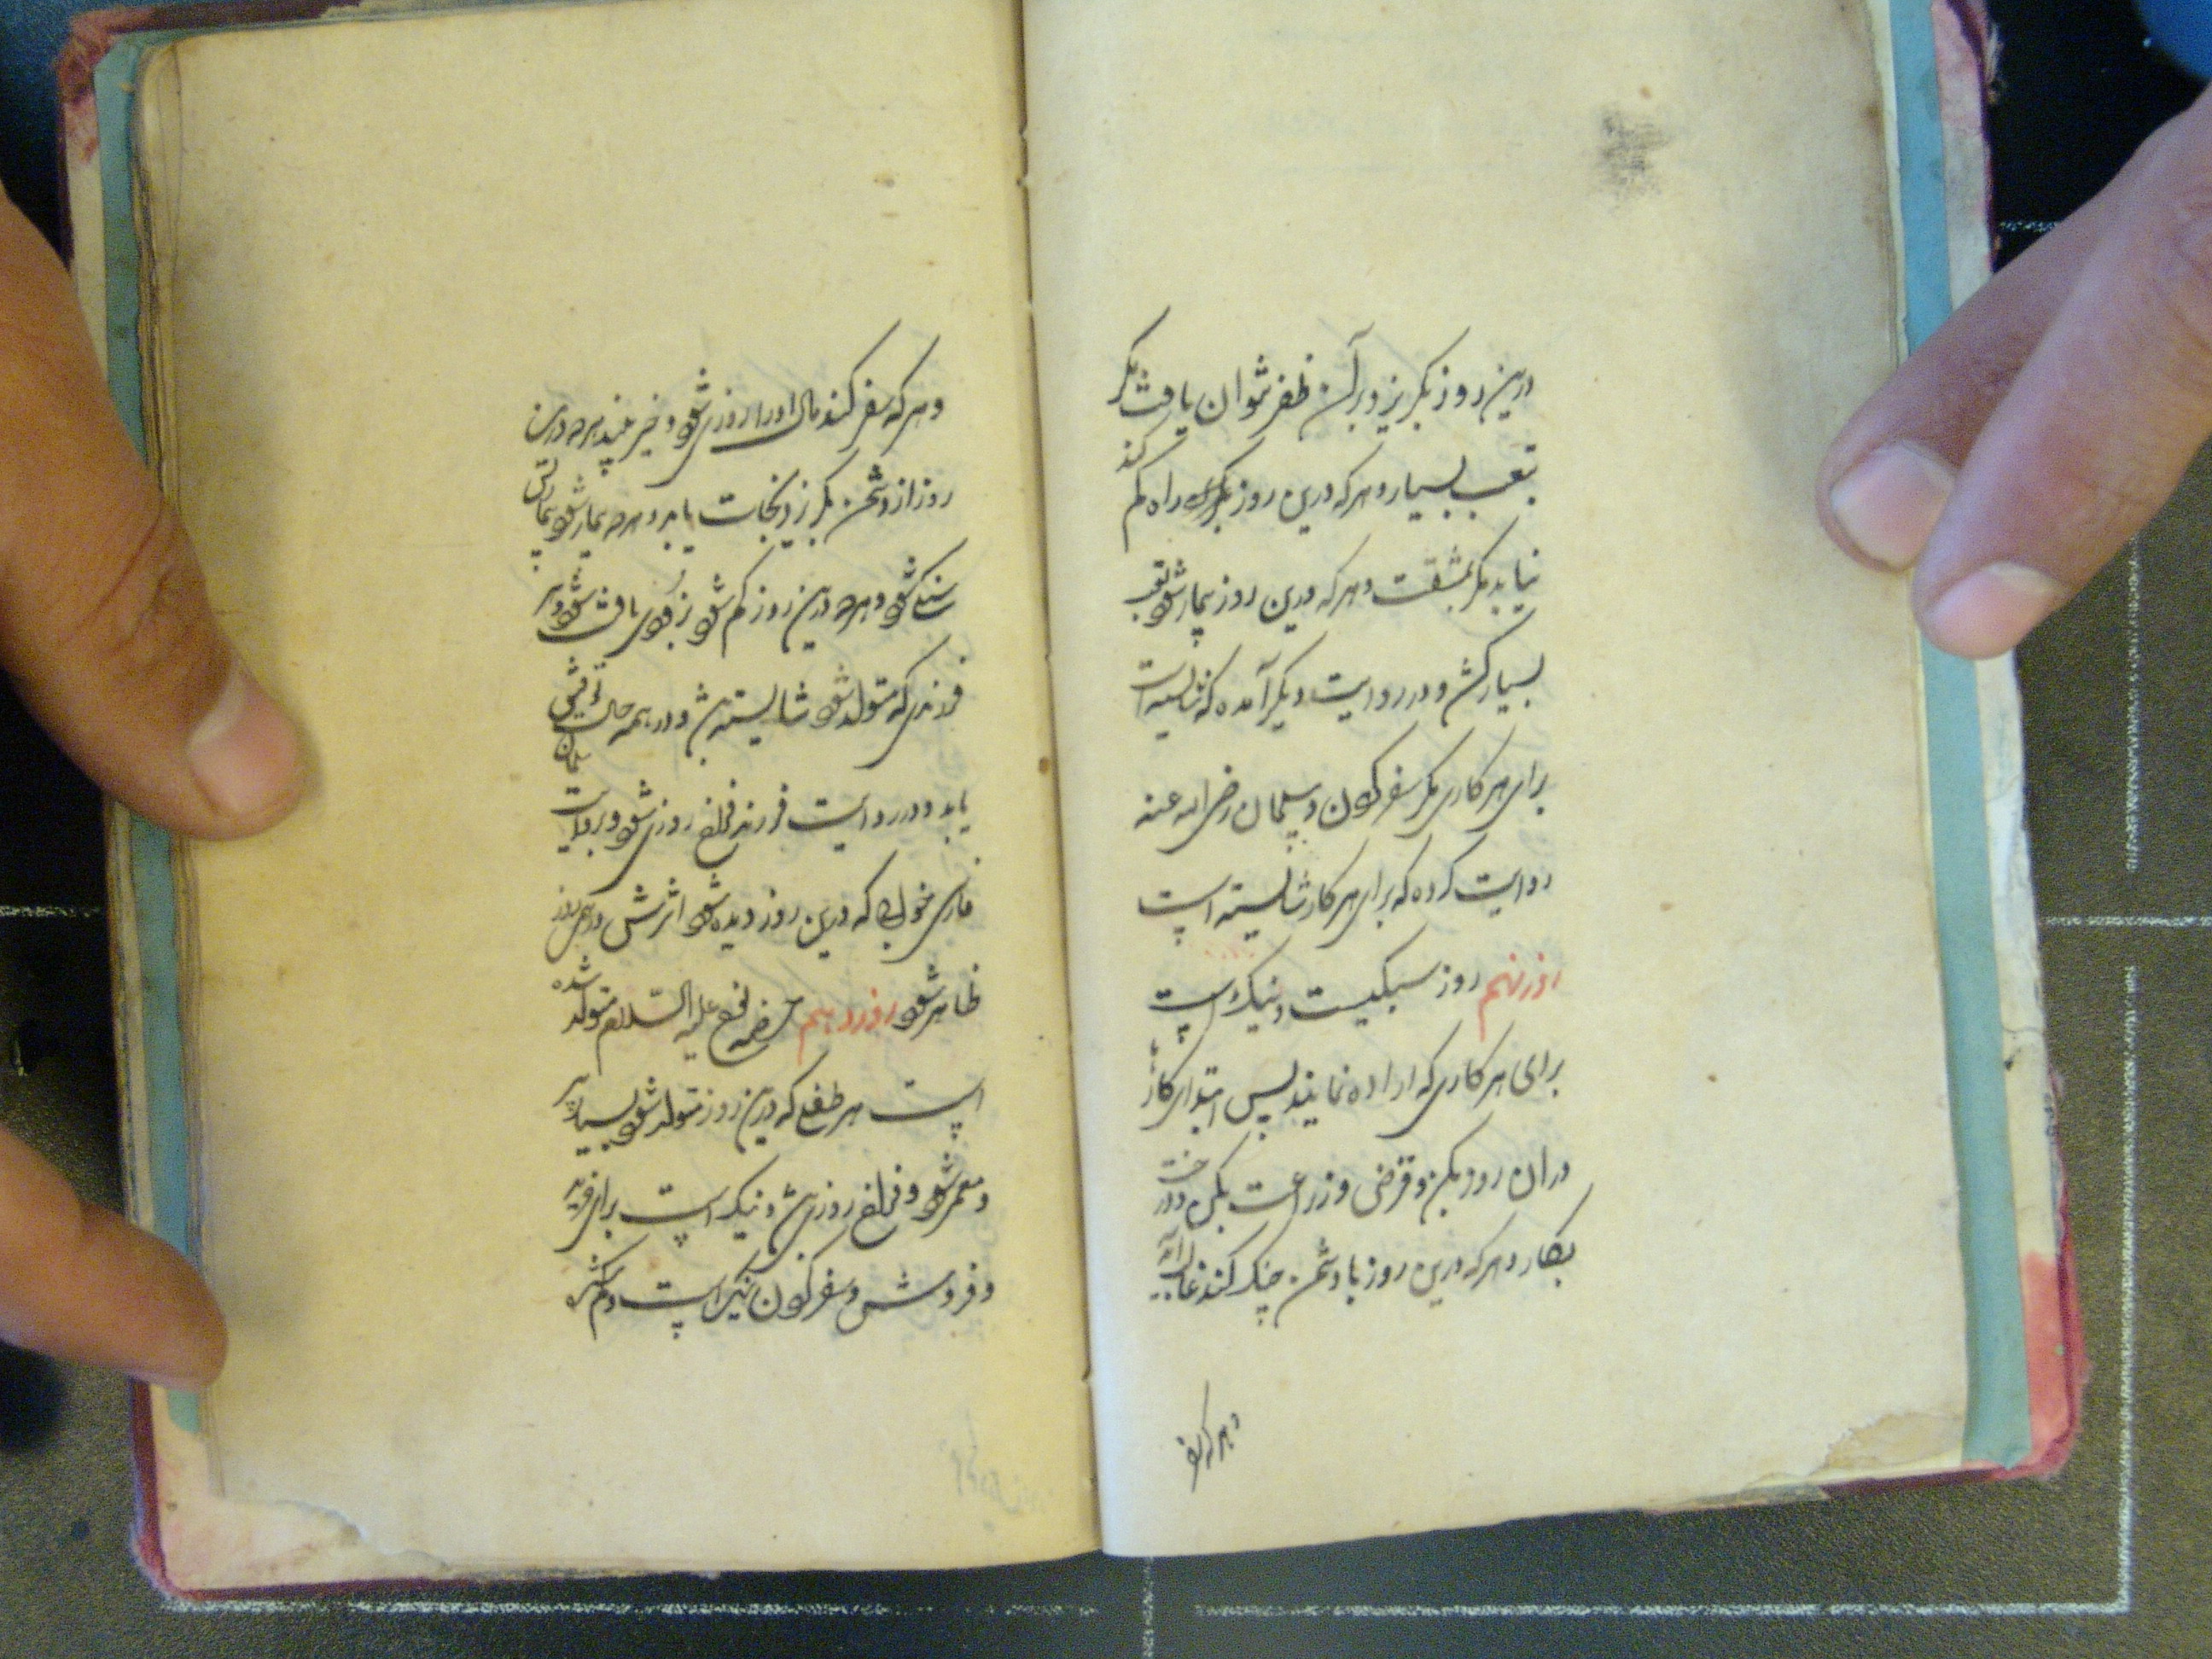 درین روز بگریزد برآن ظفر نتوان یافت مگر
بتعب بسیار و هرکه درین روز راه گم کند
نیابد مگر بمشقت و هرکه درین روز بیمار شود تعب
بسیار کشد و در روایت دیگر آمده که شایسته است
برای هر کاری مگر سفر کردن و سلمان رضی الله عنه
روایت کرده که برای هر کار شایسته است
روز نهم روز سبکیست و نیک است
برای هر کاری که اراده نمایند پس ابتدای کارها
دران روز بکن و قرض و زراعت بکن و درخت
بکار و هرکه درین روز با دشمن جنگ کند غالب آید
و هرکه سفر
و هرکه سفر کند مال او را روزی شود و خیر بیند و هرکه درین
روز از دشمن بگریزد نجات یابد و هرکه بیمار شود بیماریش
سنگین شود و هرکه درین روز گم شود بزودی یافت شود و هر
فرزندی که متولد شود شایسته باشد و در همه حال توفیق
یابد و در روایت فرزند فراخ روزی شود و بروایت سلمان
فارسی خوابی که درین روز دیده شود اثرش در همان روز
ظاهر شود روز دهم حضرت نوح علیه السلام متولد شده
است هر طفلی که درین روز متولد شود بسیار پیر
و معمر شود و فراخ روزی باشد و نیک است برای خرید
و فروش و سفر کردن نیک است و گم شده